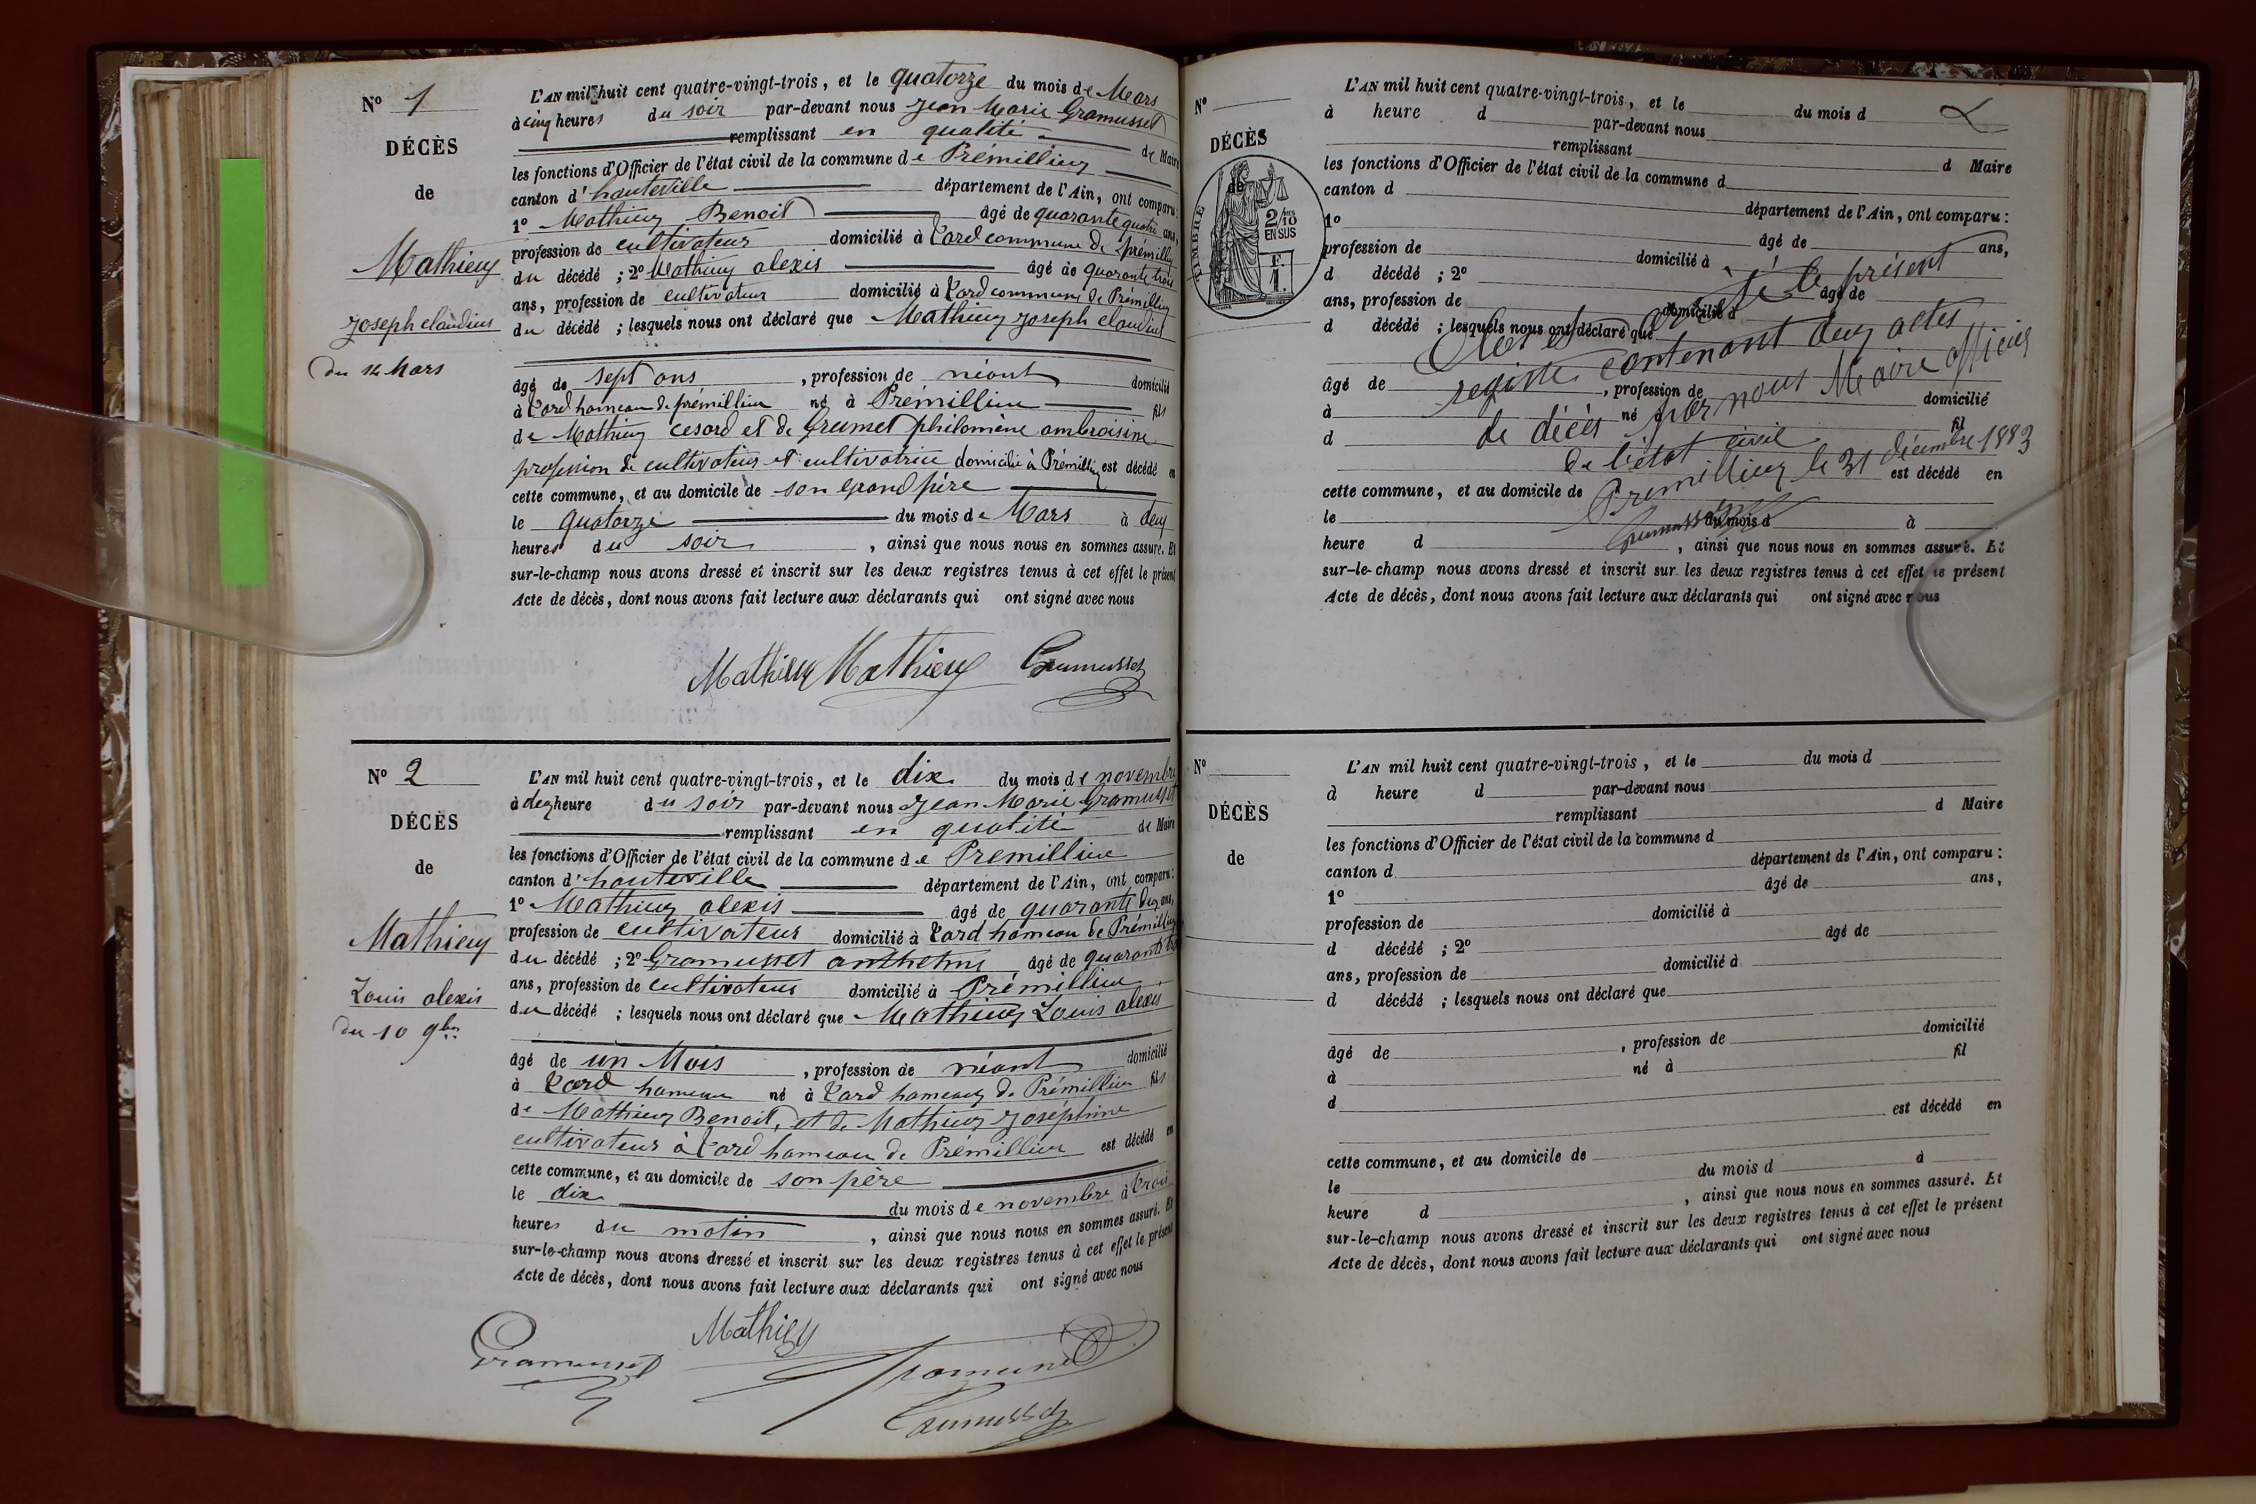 N° 1
DÉCÈS
de
Mathieu
Joseph claudius
du 14 Mars
L'AN mil huit cent quatre-vingt-trois, et le quatorze du mois de Mars
à cinq heures du soir par-devant nous Jean Marie Gramusset
remplissant en qualité de Maire
les fonctions d'Officier de l'état civil de la commune de Prémillieu
canton d'hauteville département de l'Ain, ont comparu:
1° Mathieu Benoit âgé de quarante quatre ans,
profession de cultivateur domicilié à Lard commune de prémillieu
du décédé ; 2° Mathieu alexis âgé de quarante trois
ans, profession de cultivateur domicilié à Lard commune de Prémillieu
du décédé ; lesquels nous ont déclaré que Mathieu Joseph claudius
âgé de sept ans, profession de néant domicilié
à Lard hameau de prémillieu né à Prémillieu fils
de Mathieu cesard et de Grumet philomène ambroisine
profession de cultivateur et cultivatrice domicilié à Prémillieu est décédé en
cette commune, et au domicile de son grand père
le quatorze du mois de Mars à deux
heures du soir, ainsi que nous nous en sommes assuré. Et
sur-le-champ nous avons dressé et inscrit sur les deux registres tenus à cet effet le présent
Acte de décès, dont nous avons fait lecture aux déclarants qui ont signé avec nous
Mathieu Mathieu Gramusset
N° 2
DÉCÈS
de
Mathieu
Louis alexis
du 10 9bre
L'AN mil huit cent quatre-vingt-trois, et le dix du mois de novembre
à deux heure du soir par-devant nous Jean Marie Gramusset
remplissant en qualité de Maire
les fonctions d'Officier de l'état civil de la commune de Premillieu
canton d'hauteville département de l'Ain, ont comparu:
1° Mathieu alexis âgé de quarante deux ans,
profession de cultivateur domicilié à Lard hameau de Prémillieu
du décédé ; 2° Gramusset anthelme âgé de quarante
ans, profession de cultivateur domicilié à Prémillieu
du décédé ; lesquels nous ont déclaré que Mathieu Louis alexis
âgé de un Mois, profession de néant domicilié
à Lard hameau né à Lard hameau de Prémillieu fils
de Mathieu Benoit, et de Mathieu Joséphine
cultivateurs à Lard hameau de Prémillieu est décédé en
cette commune, et au domicile de son père
le dix du mois de novembre à trois
heures du matin, ainsi que nous nous en sommes assuré. Et
sur-le-champ nous avons dressé et inscrit sur les deux registres tenus à cet effet le présent
Acte de décès, dont nous avons fait lecture aux déclarants qui ont signé avec nous
Gramusset Mathieu
Gramusset
N°
DÉCÈS
de
TIMBRE
2/10 EN SUS
F. 1.
L'AN mil huit cent quatre-vingt-trois, et le du mois d
à heure d par-devant nous
remplissant d Maire
les fonctions d'Officier de l'état civil de la commune d
canton d département de l'Ain, ont comparu:
1° âgé de ans,
profession de domicilié à
d décédé ; 2° âgé de
ans, profession de domicilié à
d décédé ; lesquels nous ont déclaré que
âgé de, profession de domicilié
à né à
d fil
est décédé en
cette commune, et au domicile de
le du mois d à
heure d, ainsi que nous nous en sommes assuré. Et
sur-le-champ nous avons dressé et inscrit sur les deux registres tenus à cet effet le présent
Acte de décès, dont nous avons fait lecture aux déclarants qui ont signé avec nous
Clos et arrêté le présent
registre contenant deux actes
de décès par nous Maire officier
de l'état civil
Premillieu le 31 décembre 1883
Gramusset
N°
DÉCÈS
de
L'AN mil huit cent quatre-vingt-trois, et le du mois d
à heure d par-devant nous
remplissant d Maire
les fonctions d'Officier de l'état civil de la commune d
canton d département de l'Ain, ont comparu:
1° âgé de ans,
profession de domicilié à
d décédé ; 2° âgé de
ans, profession de domicilié à
d décédé ; lesquels nous ont déclaré que
âgé de, profession de domicilié
à né à fil
d
est décédé en
cette commune, et au domicile de
le du mois d à
heure d, ainsi que nous nous en sommes assuré. Et
sur-le-champ nous avons dressé et inscrit sur les deux registres tenus à cet effet le présent
Acte de décès, dont nous avons fait lecture aux déclarants qui ont signé avec nous